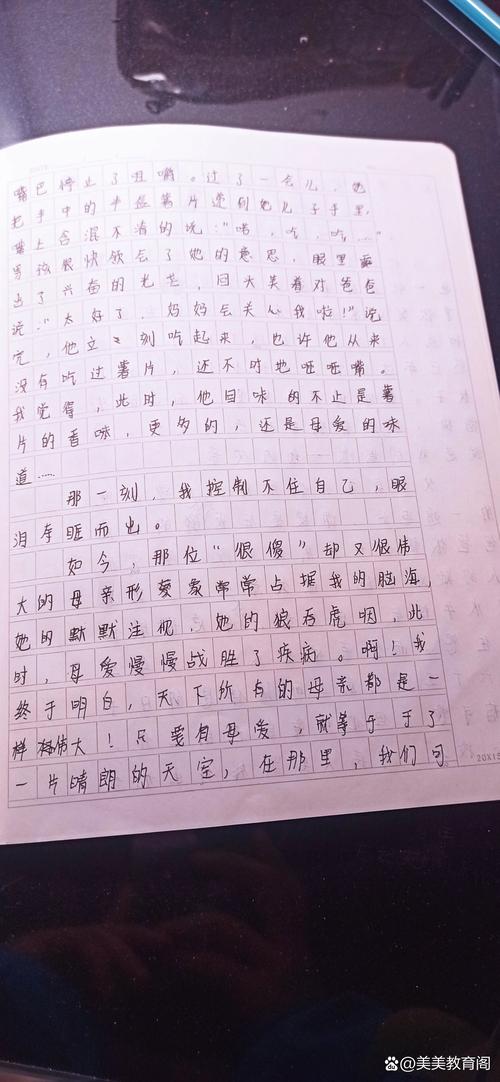 嘴巴停止了咀嚼。过了一会儿，她
把手中的半盘薯片递到她儿子手里，
嘴上含混不清的说："喏，吃，吃……"
男孩很快领会了她的意思，眼里露
出了兴奋的光芒，回头笑着对爸爸
说："太好了，妈妈会关心我啦！"说
完，他立刻吃起来，也许他从来
没有吃过薯片，还不时地咂咂嘴。
我觉得，此时，他回味的不止是薯
片的香味，更多的，还是母爱的味
道……
那一刻，我控制不住自己，眼
泪夺眶而出。
如今，那位"很傻"却又很伟
大的母亲形象常常占据我的脑海，
她的默默注视，她的狼吞虎咽，此
时，母爱慢慢战胜了疾病。啊！我
终于明白，天下所有的母亲都是一
样伟大！只要有母爱，就等于于了
一片晴朗的天空，在那里，我们可
20X15
@美美教育阁